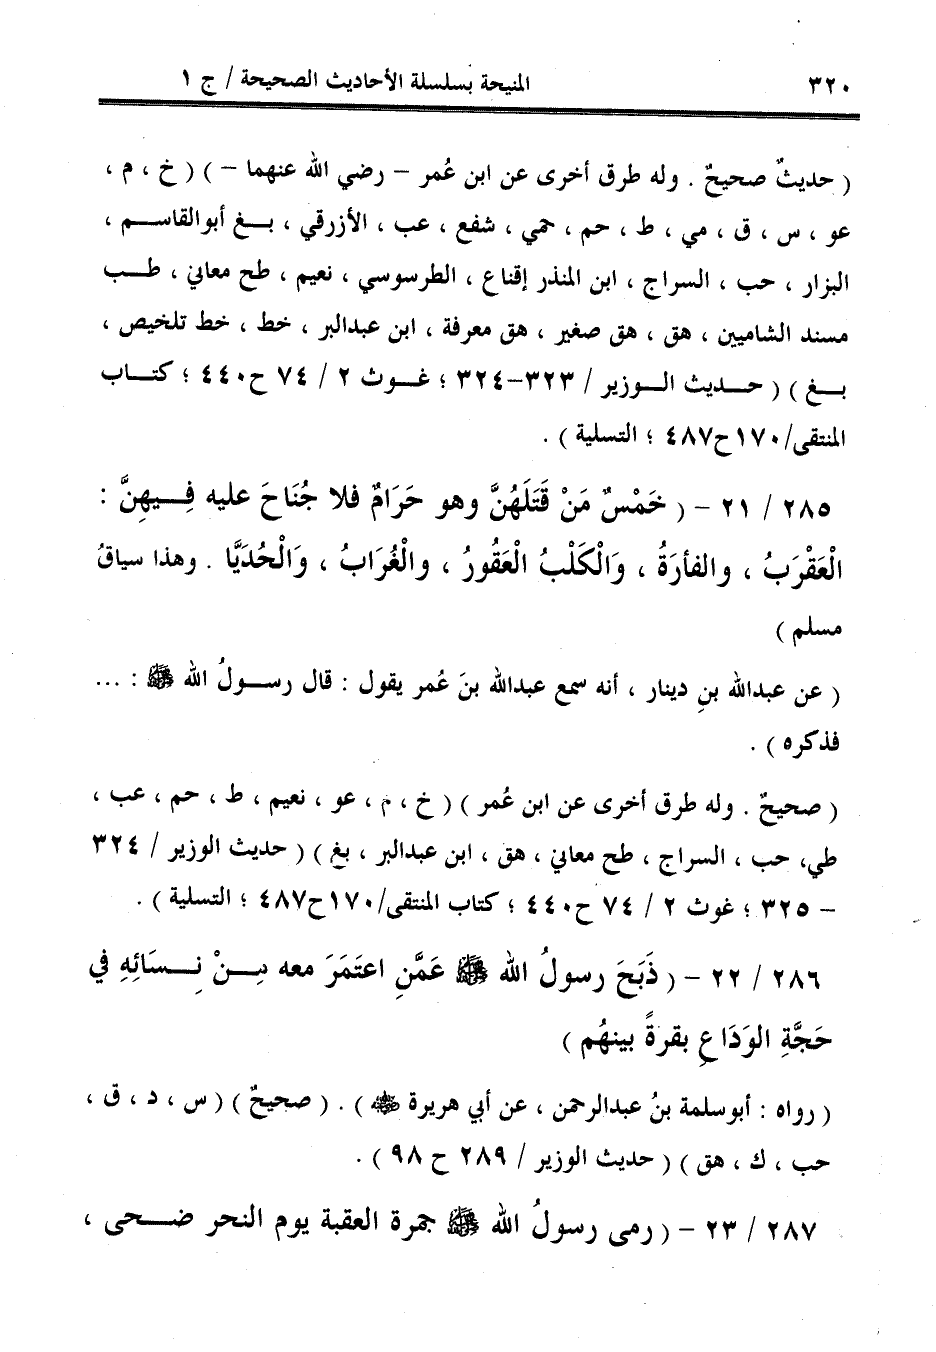 ٣٢٠ المنيحة بسلسلة الأحاديث الصحيحة / ج ١
( حديثٌ صحيحٌ . وله طرق أخرى عن ابن عُمر – رضي الله عنهما – ) ( خ ، م ،
عو ، س ، ق ، مي ، ط ، حم ، حمي ، شفع ، عب ، الأزرقي ، بــغ أبوالقاســم ،
البزار ، حب ، السراج ، ابن المنذر إقناع ، الطرسوسي ، نعيم ، طح معاني ، طــب
مسند الشاميين ، هق ، هق صغير ، هق معرفة ، ابن عبدالبر ، خط ، خط تلخيص ،
بــغ ) ( حــديث الــوزير / ٣٢٣–٣٢٤ ؛ غــوث ٢ / ٧٤ ح٤٤٠ ؛ كتــاب
المنتقى/١٧٠ح٤٨٧ ؛ التسلية ) .
٢٨٥ / ٢١ – ( خَمْسٌ مَنْ قَتَلَهُنَّ وهو حَرَامٌ فلا جُنَاحَ عليه فِــيهِنَّ :
الْعَقْرَبُ ، والفأرَةُ ، وَالْكَلْبُ الْعَقُورُ ، والْغُرَابُ ، وَالْحُدَيَّا . وهذا سياقُ
مسلم )
( عن عبدالله بنِ دينار ، أنه سمع عبدالله بنَ عُمر يقول : قال رســولُ الله ﷺ : ...
فذكره ) .
( صحيحٌ . وله طرق أخرى عن ابن عُمر ) ( خ ، م ، عو ، نعيم ، ط ، حم ، عب ،
طي، حب ، السراج ، طح معاني ، هق ، ابن عبدالبر ، بغ ) ( حديث الوزير / ٣٢٤
– ٣٢٥ ؛ غوث ٢ / ٧٤ ح٤٤٠ ؛ كتاب المنتقى/١٧٠ح٤٨٧ ؛ التسلية ) .
٢٨٦ / ٢٢ – ( ذَبَحَ رسولُ الله ﷺ عَمَّنِ اعتَمَرَ معه مِــنْ نِــسَائِهِ في
حَجَّةِ الوَدَاعِ بقرةً بينهُم )
( رواه : أبوسلمة بنُ عبدالرحمن ، عن أبي هريرة ﷺ ) . ( صحيحٌ ) ( س ، د ، ق ،
حب ، ك ، هق ) ( حديث الوزير / ٢٨٩ ح ٩٨ ) .
٢٨٧ / ٢٣ – ( رمى رسولُ الله ﷺ جمرة العقبة يوم النحر ضــحى ،